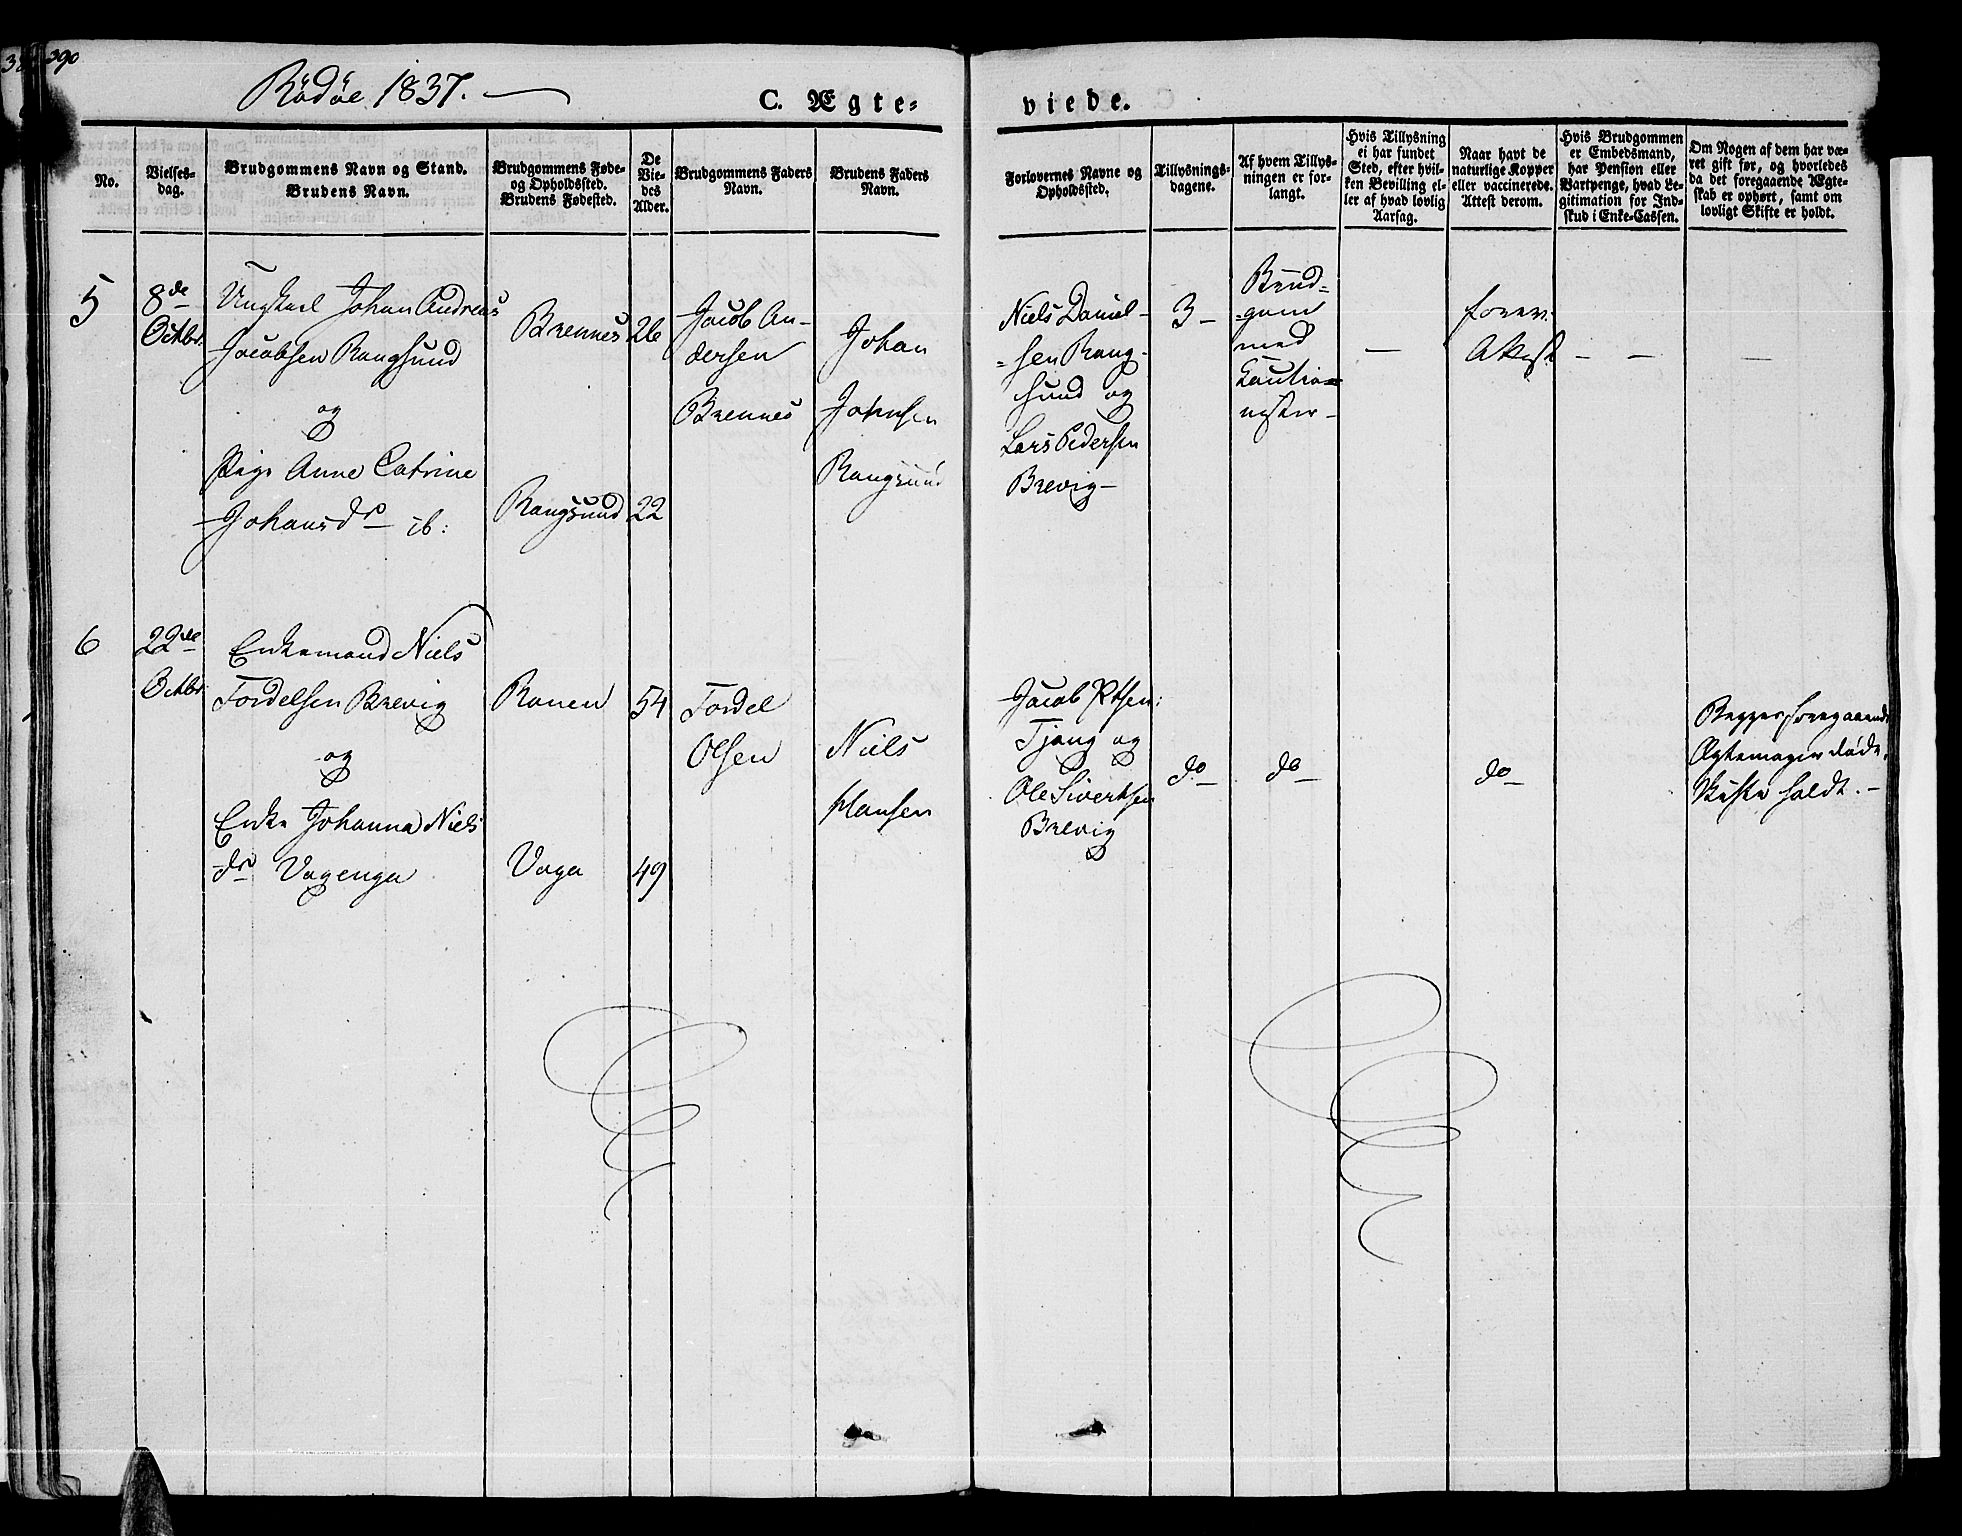 390
Rödöe 1837.
C. Ægte=
viede.
No.
Vielses-
dag.
Brudgommens Navn og Stand.
Brudens Navn.
Brudgommens Føde-
og Opholdssted.
Brudens Fødested.
De
Vie-
des
Alder.
Brudgommens Faders
Navn.
Brudens Faders
Navn.
Forlovernes Navne og
Opholdssted.
Tillysnings-
dagene.
Af hvem Tillys-
ningen er for-
langt.
Hvis Tillysning
ei har fundet
Sted, efter hvil-
ken Bevilling el-
ler af hvad lovlig
Aarsag.
Naar havt de
naturlige Kopper
eller vaccinerede.
Attest derom.
Hvis Brudgommen
er Embedsmand,
har Pension eller
Vartpenge, hvad Le-
gitimation for Ind-
skud i Enke-Cassen.
Om Nogen af dem har væ-
ret gift før, og hvorledes
da det foregaaende Ægte-
skab er ophørt, samt om
lovligt Skifte er holdt.
5
8de
Octbr.
Ungkarl Johan Andreas
Jacobsen Rangsund
og
Pige Anne Catrine
Johansdr ib:
Brennes
Rangsund
26
22
Jacob An-
dersen
Brennes
Johan
Johnsen
Rangsund
Niels Daniel-
=sen Rang-
sund og
Lars Pedersen
Brevig-
3-
Brud=
=gom
med
Cautio=
nister-
-
forev.
Attest
- -
-
6
22de
Octbr.
Enkemand Niels
Tordelsen Brevig
og
Enke Johanna Niels
dr Vagenga
Ronen
Vaga
54
49
Tordel
Olsen
Niels
Hansen
Jacob Ptsen:
Tjong og
Ole Sivertsen
Brevig
do-
do-
do-
Begges foregaaende
Ægtemager døde,
Skifte holdt.-